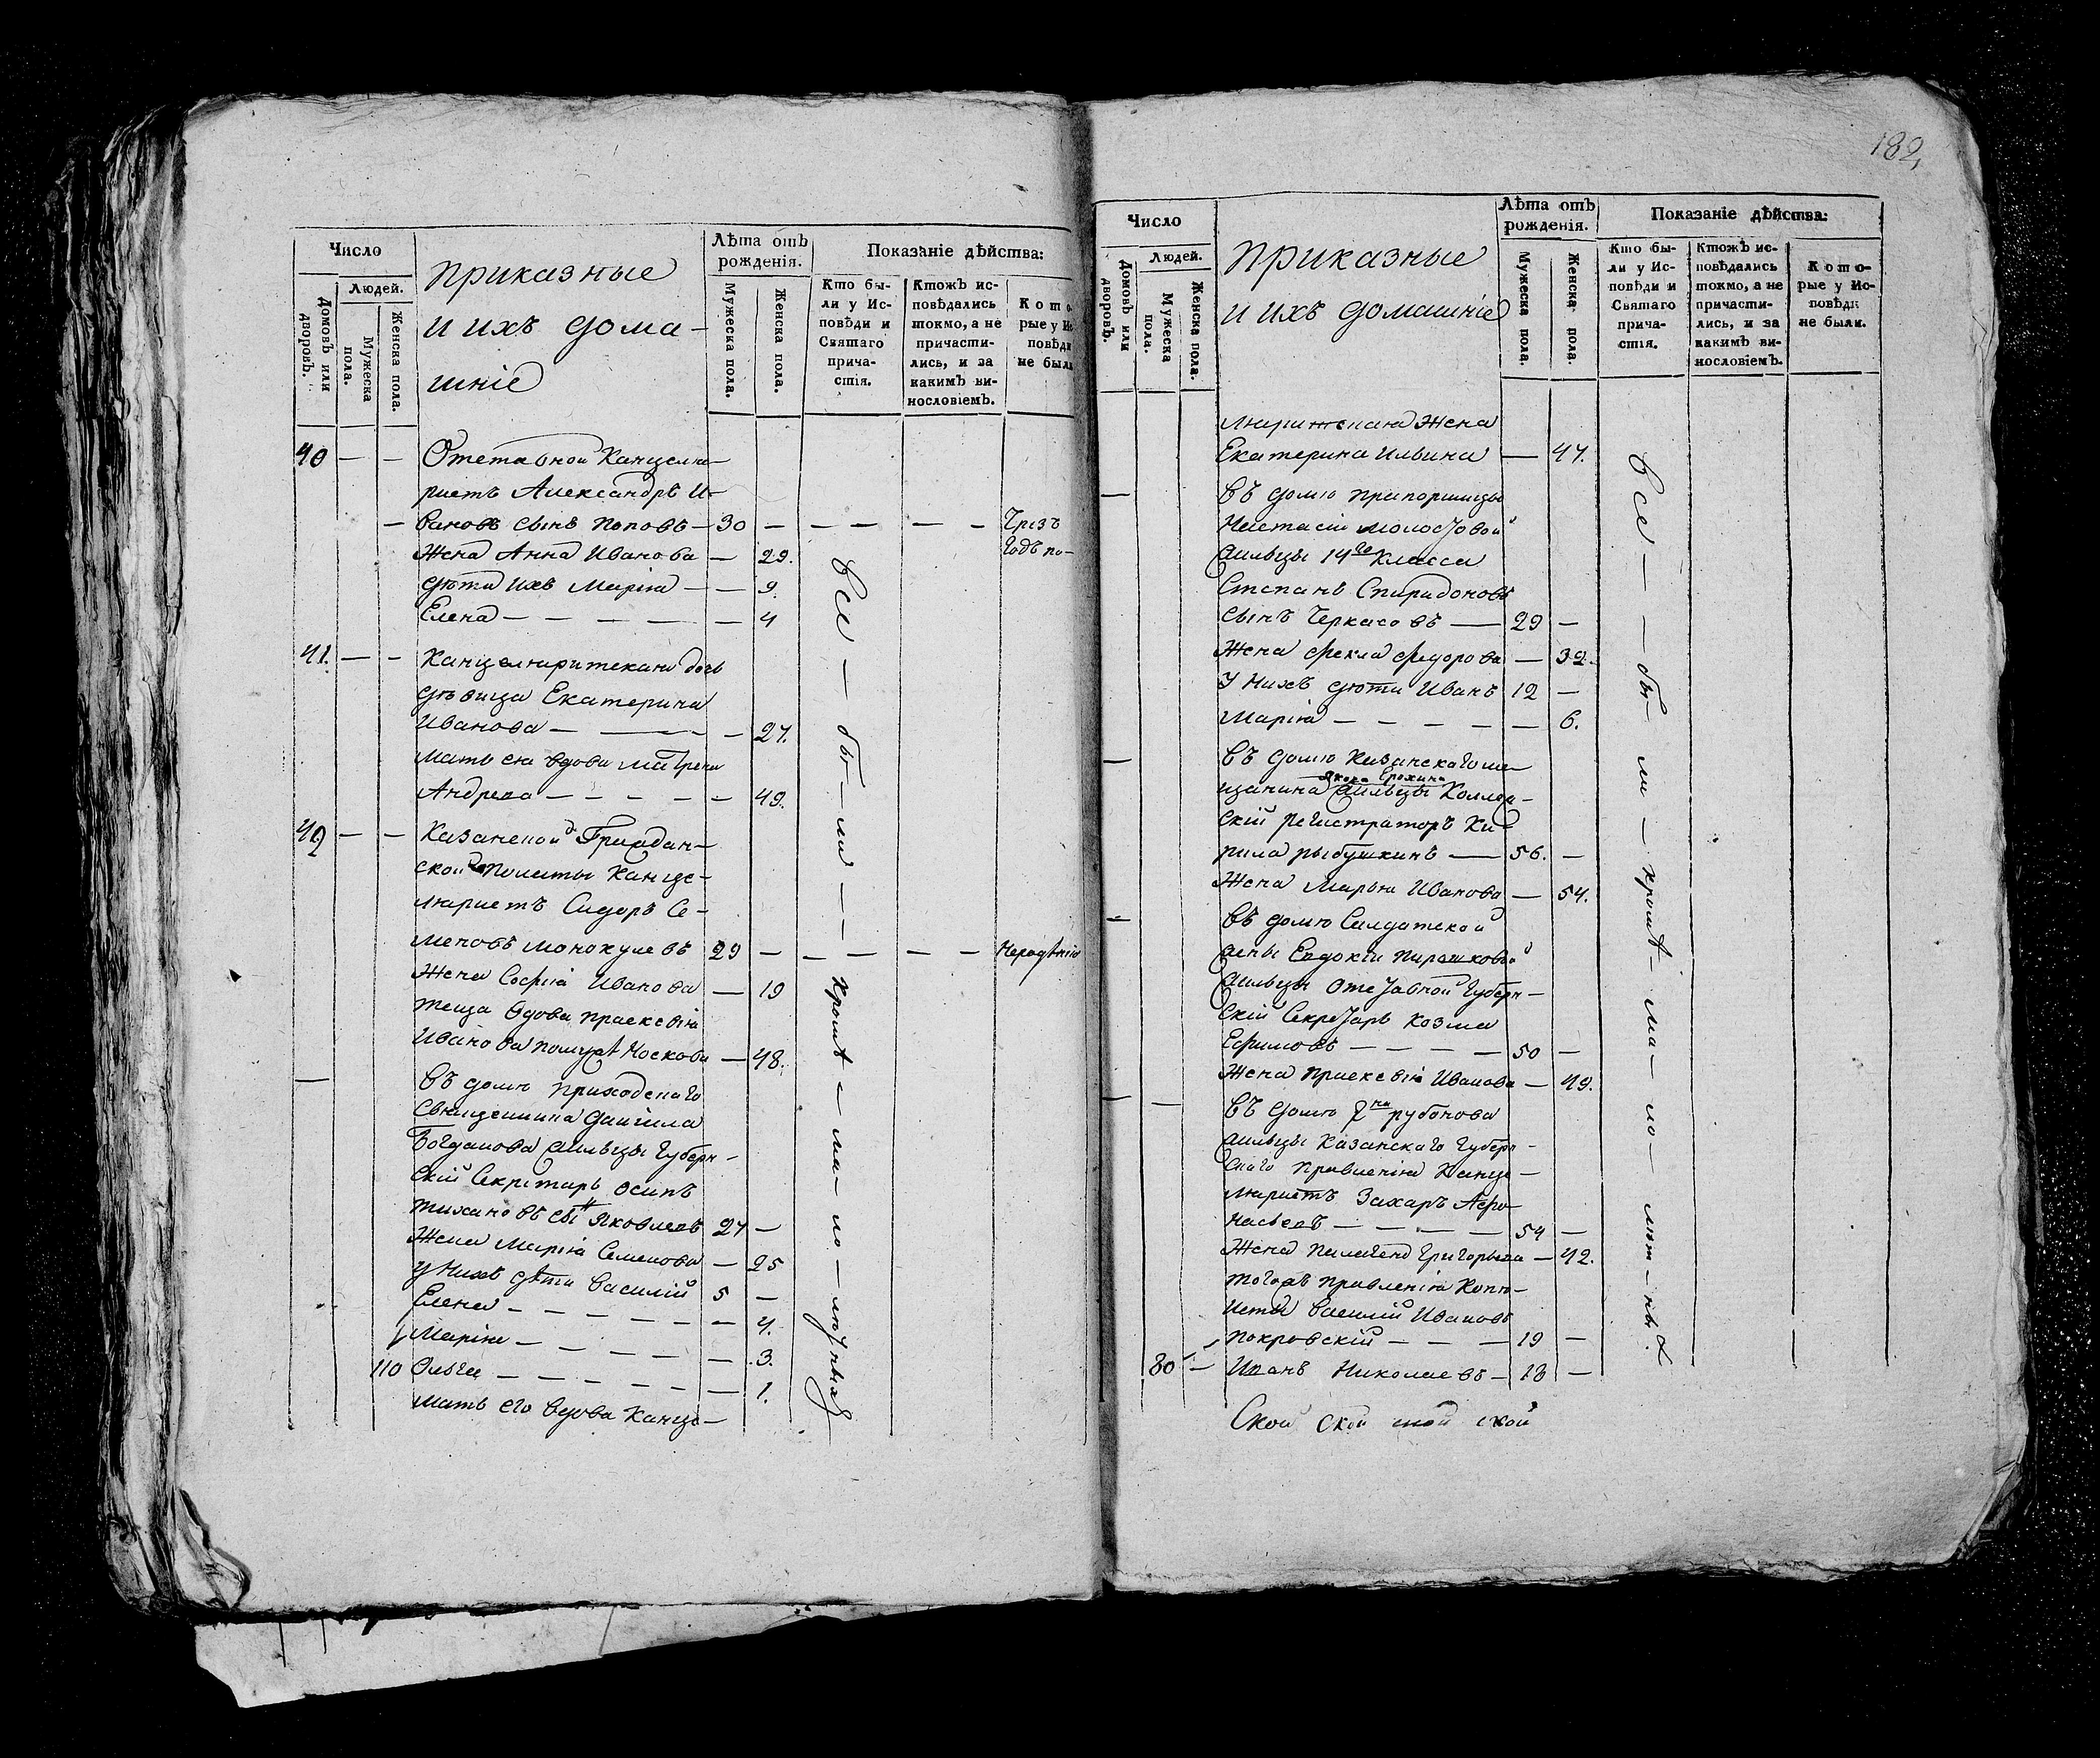 Число
приказные
и ихъ дома-
шніе
Лѣта отъ рожденія.
Показаніе дѣйства:
Людей.
Домовъ или дворовъ.
Мужеска пола.
Женска пола.
Мужеска пола.
Женска пола.
Кто бы-
ли у Ис-
повѣди и
Святаго
прича-
стія.
Ктожъ ис-
повѣдались
токмо, а не
причасти-
лись, и за
какимъ ви-
нословіемъ.
Кото
рые у Ис
повѣди
не были
40 — — Отставной Канцеля-
ристъ Александръ И-
— вановъ сынъ Поповъ — 30 — — — — — Чрезъ
Жена Анна Иванова — 29. годъ по-
дѣти ихъ Марія — — 9.
Елена — — — — — 4
41. — — Канцеляритская дочь
дѣвица Екатерина
Иванова — — — — 27.
мать ея вдова Матрена
Андреева — — — — — 49.
42 — — Казанской Граждан-
ской Полаты Канце-
ляристъ Сидоръ Се-
меновъ 29 — — — — — Нерадѣнію
Жена Софія Иванова — 19
теща вдова Праскевія
Иванова — 48.
— Въ домѣ приходскаго
Священника Даніила
Богданова жильцы Губерн-
скій Секретарь Осипъ
Яковлевъ 27 —
Жена Марія Семенова — 25
у нихъ дѣти Василій 5 —
Елена — — — — — — 4.
Марія — — — — — — 3.
110 Ольга — — — — — — 1.
мать его вдова Канце-
все — бы — ли — — кромѣ — ма — ло — лѣтныхъ
182
Число
приказные
и ихъ домашніе
Лѣта отъ рожденія.
Показаніе дѣйства:
Людей.
Домовъ или дворовъ.
Мужеска пола.
Женска пола.
Мужеска пола.
Женска пола.
Кто бы-
ли у Ис-
повѣди и
Святаго
прича-
стія.
Ктожъ ис-
повѣдались
токмо, а не
причасти-
лись, и за
какимъ ви-
нословіемъ.
Кото-
рые у Ис-
повѣди
не были.
Жена
Екатерина Ильина — 47.
— Въ домѣ прапорщицы
Настасіи Молостовой
жильцы 14го класса
Степанъ Спиридоновъ
сынъ Черкасовъ — 29 —
Жена Фекла Федорова — 32.
У нихъ дѣти Иванъ 12 —
Марія — — — — — 6.
— Въ домѣ Казанскаго ме-
щанина Якова Ерохина жильцы Коллеж-
скій регистраторъ Ки-
рила Рыбушкинъ — 56. —
Жена Марья Иванова — 54.
— Въ домѣ Салдатской
жены Евдокіи Пирожковой
жильцы Отставной Губерн-
скій Секретарь Козма
Ефимовъ — — — — 50 —
Жена Праскевія Иванова — 49.
— — Въ домѣ Рубонова
жильцы Казанскаго Губерн-
скаго Правленія Канце-
ляристъ Захаръ Афо-
насьевъ — — — — 54 —
Жена Пелагея Григорьева — 42.
тогожъ Правленія Копі-
истъ Василій Ивановъ
Покровскій — — — 19 —
80 — Иванъ Николаевъ — 18 —
Ской ской той ской
все — — — бы — ли — кромѣ — ма — ло — лѣт — ныхъ